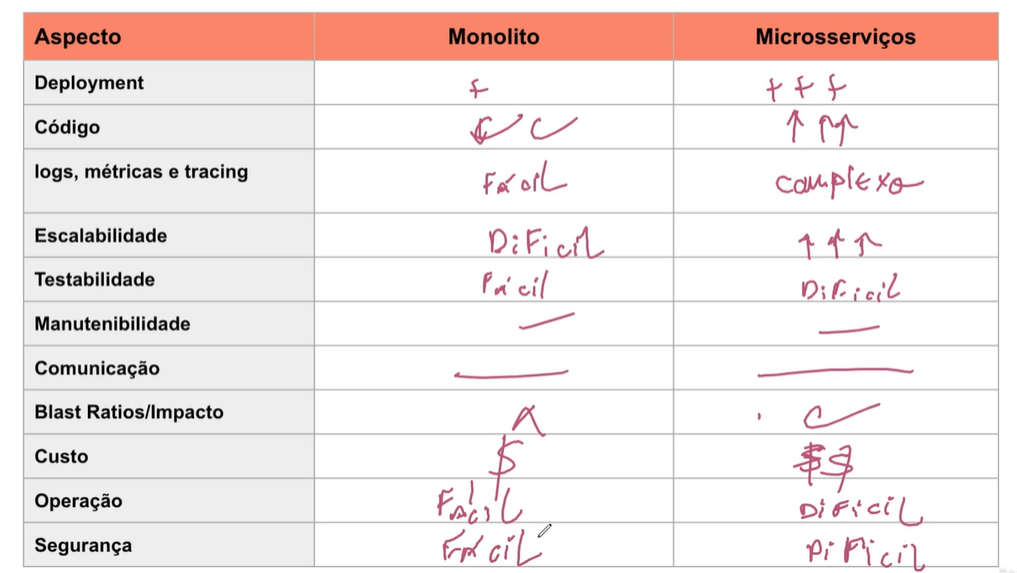 Aspecto Monolito Microsserviços
Deployment + + + +
Código
logs, métricas e tracing Fácil complexo
Escalabilidade DiFicil
Testabilidade Fácil DiFicil
Manutenibilidade
Comunicação
Blast Ratios/Impacto
Custo $ $$
Operação Fácil DiFicil
Segurança Fácil DiFicil